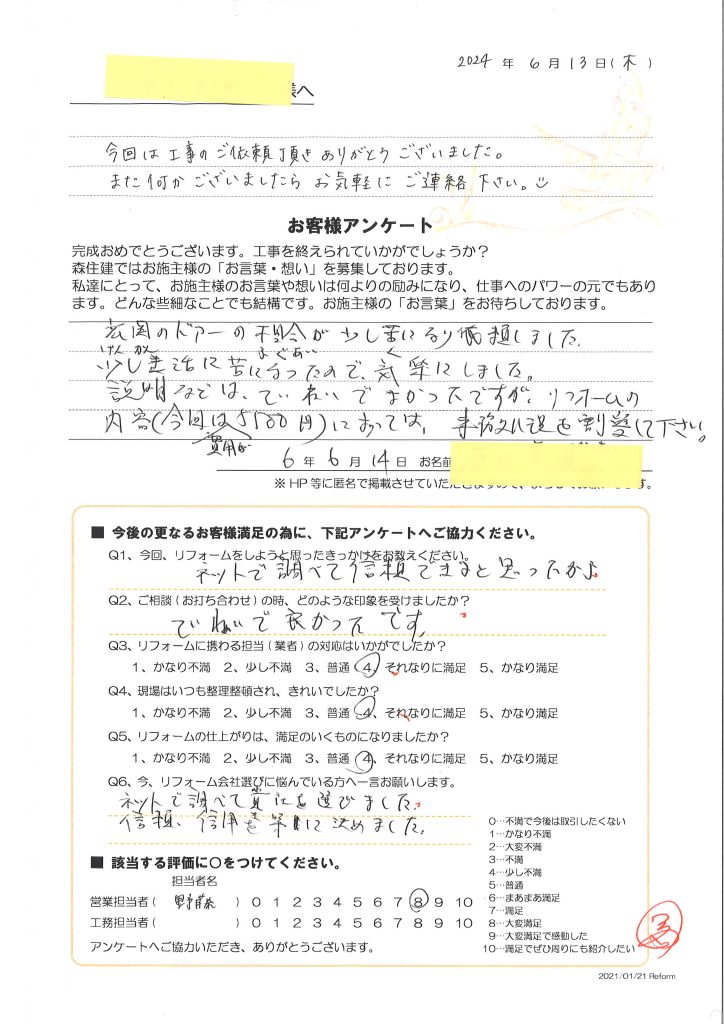 2024 年 6 月 13 日(木)
様へ
今回は工事のご依頼頂きありがとうございました。
また何かございましたらお気軽にご連絡下さい。
お客様アンケート
完成おめでとうございます。工事を終えられていかがでしょうか?
森住建ではお施主様の「お言葉・想い」を募集しております。
私達にとって、お施主様のお言葉や想いは何よりの励みになり、仕事へのパワーの元でもあり
ます。どんな些細なことでも結構です。お施主様の「お言葉」をお待ちしております。
玄関のドアーの具合が少し苦になり依頼しました。
げんかん ぐあい く
少し生活に苦になったので、気楽にしました。
説明などは、ていねいでよかったですが、リフォームの
内容(今回は5500円)によっては、事務処理を割愛して下さい。
費用が
6 年 6 月 14 日 お名前
※HP等に匿名で掲載させていただ
■ 今後の更なるお客様満足の為に、下記アンケートへご協力ください。
Q1、今回、リフォームをしようと思ったきっかけをお教えください。
ネットで調べて信頼できると思ったから
Q2、ご相談(お打ち合わせ)の時、どのような印象を受けましたか?
ていねいで良かったです。
Q3、リフォームに携わる担当(業者)の対応はいかがでしたか?
1、かなり不満 2、少し不満 3、普通 4、それなりに満足 5、かなり満足
Q4、現場はいつも整理整頓され、きれいでしたか?
1、かなり不満 2、少し不満 3、普通 4、それなりに満足 5、かなり満足
Q5、リフォームの仕上がりは、満足のいくものになりましたか?
1、かなり不満 2、少し不満 3、普通 4、それなりに満足 5、かなり満足
Q6、今、リフォーム会社選びに悩んでいる方へ一言お願いします。
ネットで調べて貴社を選びました。
信頼、信用を第一に決めました。
■ 該当する評価に○をつけてください。
担当者名
営業担当者( ) 0 1 2 3 4 5 6 7 8 9 10
工務担当者( ) 0 1 2 3 4 5 6 7 8 9 10
アンケートへご協力いただき、ありがとうございます。
0…不満で今後は取引したくない
1…かなり不満
2…大変不満
3…不満
4…少し不満
5…普通
6…まあまあ満足
7…満足
8…大変満足
9…大変満足で感動した
10…満足でぜひ周りにも紹介したい
2021/01/21 Reform